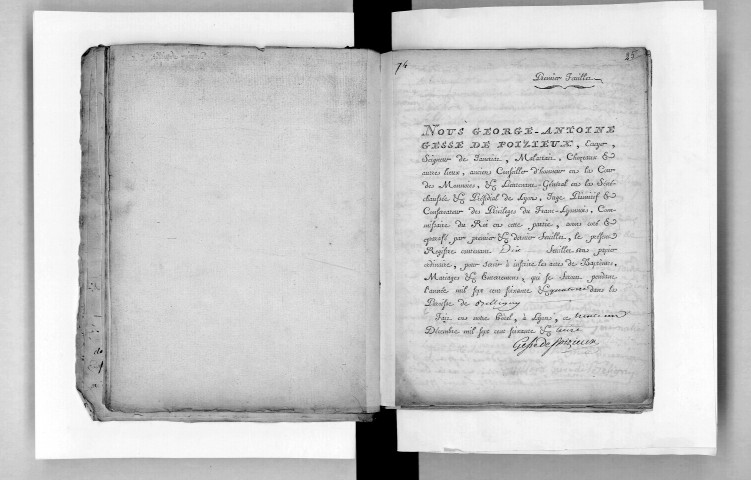 74
25
Premier Feuillet
NOUS GEORGE-ANTOINE
GESSE DE POIZIEUX, Ecuyer,
Seigneur de Janeiriat, Malatrait, Chozeaux &
autres lieux, ancien Conseiller d'honneur en la Cour
des Monnoies, & Lieutenant-Général en la Séné-
chaussée & Présidial de Lyon, Juge Primitif &
Conservateur des Privileges du Franc-Lyonnois, Com-
missaire du Roi en cette partie, avons coté &
paraphé par premier & dernier Feuillet, le présent
Registre contenant Dix Feuillets en papier
ordinaire, pour servir à inscrire les actes de Baptêmes,
Mariages & Enterremens, qui se feront pendant
l'année mil sept cent soixante & quatorze dans la
Paroisse de
Fait en notre Hôtel, à Lyon, ce trente un
Décembre mil sept cent soixante & treize
Gesse de poizieux